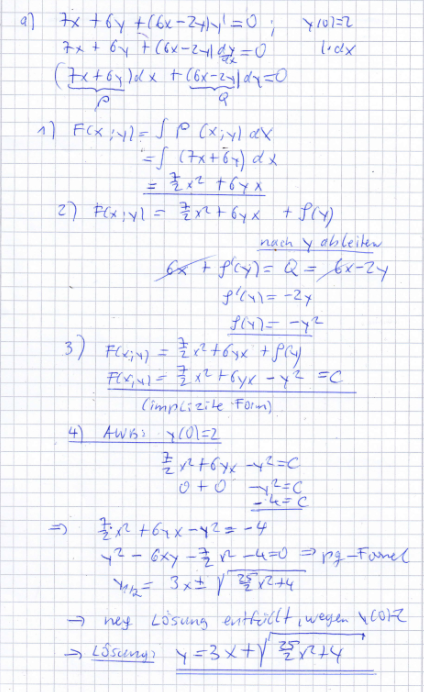 a) 7x + 6y + (6x-2y)y' = 0 ; y(0)=2
7x + 6y + (6x-2y) dy/dx = 0 |·dx
(7x+6y)dx + (6x-2y)dy=0
P Q
1) F(x;y) = ∫ P (x;y) dx
= ∫ (7x+6y) dx
= 7/2 x² + 6yx
2) F(x;y) = 7/2 x² + 6yx + f(y)
nach y ableiten
6x + f'(y) = Q = 6x-2y
f'(y) = -2y
f(y) = -y²
3) F(x;y) = 7/2 x² + 6yx + f(y)
F(x;y) = 7/2 x² + 6yx - y² = C
(implizite Form)
4) AWB: y(0)=2
7/2 x² + 6yx - y² = C
0 + 0 - y² = C
-4 = C
⇒ 7/2 x² + 6yx - y² = -4
y² - 6xy - 7/2 x² - 4 = 0 ⇒ pq-Formel
y1/2 = 3x ± √(25/2 x² + 4)
→ neg Lösung entfällt, wegen y(0)=2
→ Lösung: y = 3x + √(25/2 x² + 4)